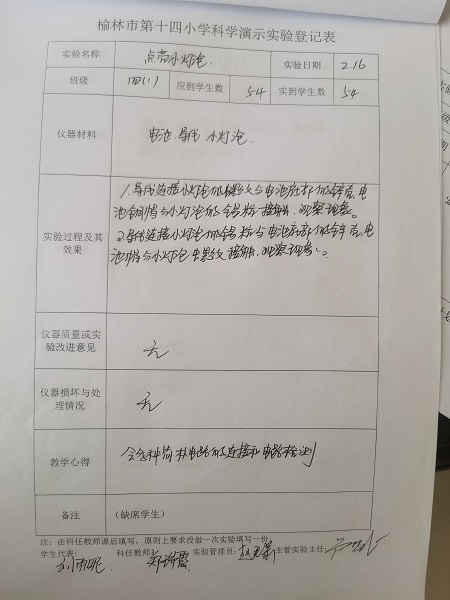 榆林市第十四小学科学演示实验登记表
实验名称 点亮小灯泡 实验日期 2.16
班级 四(1) 应到学生数 54 实到学生数 54
仪器材料 电池.导线 小灯泡
1.导线连接小灯泡的螺纹与电池底部的锌壳,电
池铜帽与小灯泡的锡粒接触,观察现象。
实验过程及其
效果
2.导线连接小灯泡的锡粒与电池底部的锌壳,电
池帽与小灯泡螺纹接触,观察现象。
仪器质量或实
验改进意见 无
仪器损坏与处
理情况 无
教学心得 会各种简单电路的连接和电路检测
备注 (缺席学生)
注:由科任教师课后填写,原则上要求没做一次实验填写一份
学生代表: 科任教师: 实验管理员: 主管实验主任: